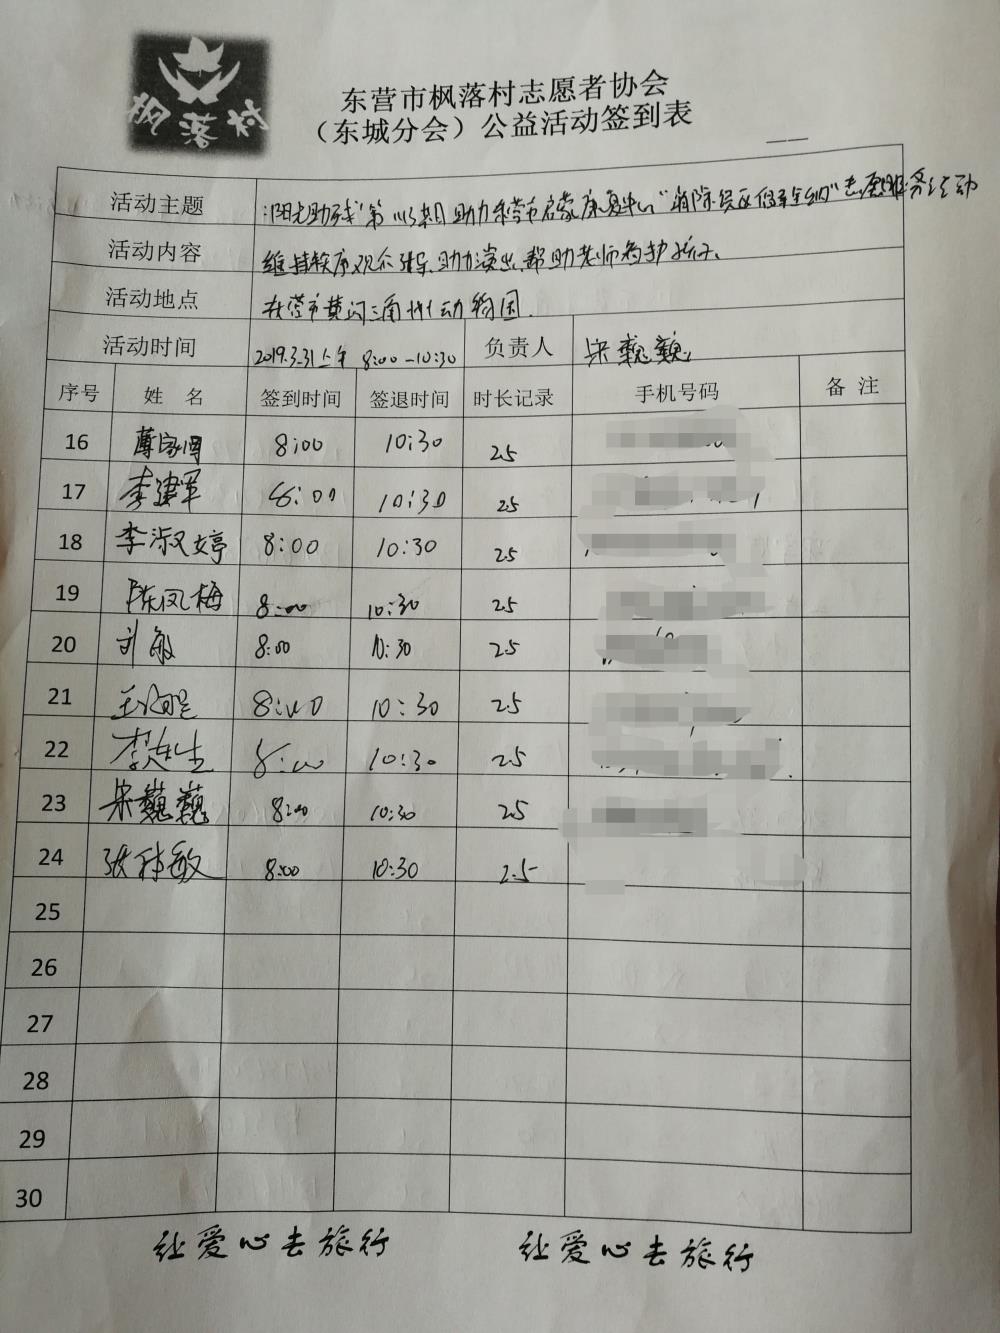 枫落村
东营市枫落村志愿者协会
（东城分会）公益活动签到表
活动主题 "阳光助残"第 期助力东营市启蒙康复中心"消除误区倡导全纳"志愿服务活动
活动内容 维持秩序观众引导、助力演出、帮助老师看护孩子、
活动地点 东营市黄河三角洲动物园.
活动时间 2019.3.31上午 8:00-10:30 负责人 宋巍巍
序号 姓 名 签到时间 签退时间 时长记录 手机号码 备 注
16 8:00 10:30 2.5
17 李建军 8:00 10:30 2.5
18 李淑婷 8:00 10:30 2.5
19 陈凤梅 8:00 10:30 2.5
20 刘敏 8:00 10:30 2.5
21 8:00 10:30 2.5
22 8:00 10:30 2.5
23 宋巍巍 8:00 10:30 2.5
24 张 敏 8:00 10:30 2.5
25
26
27
28
29
30
让爱心去旅行 让爱心去旅行